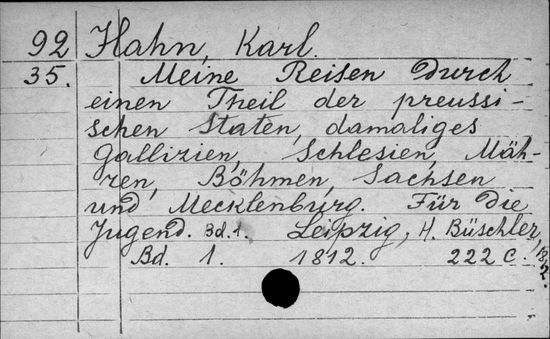 92 Hahn, Karl.
35. Meine Reisen durch
einen Theil der preussi-
schen Staten, damaliges
Gallizien, Schlesien, Mäh-
ren, Böhmen, Sachsen
und Mecklenburg. Für die
Jugend. Bd. 1. Leipzig, H. Büschler,
Bd. 1. 1812. 222 c.